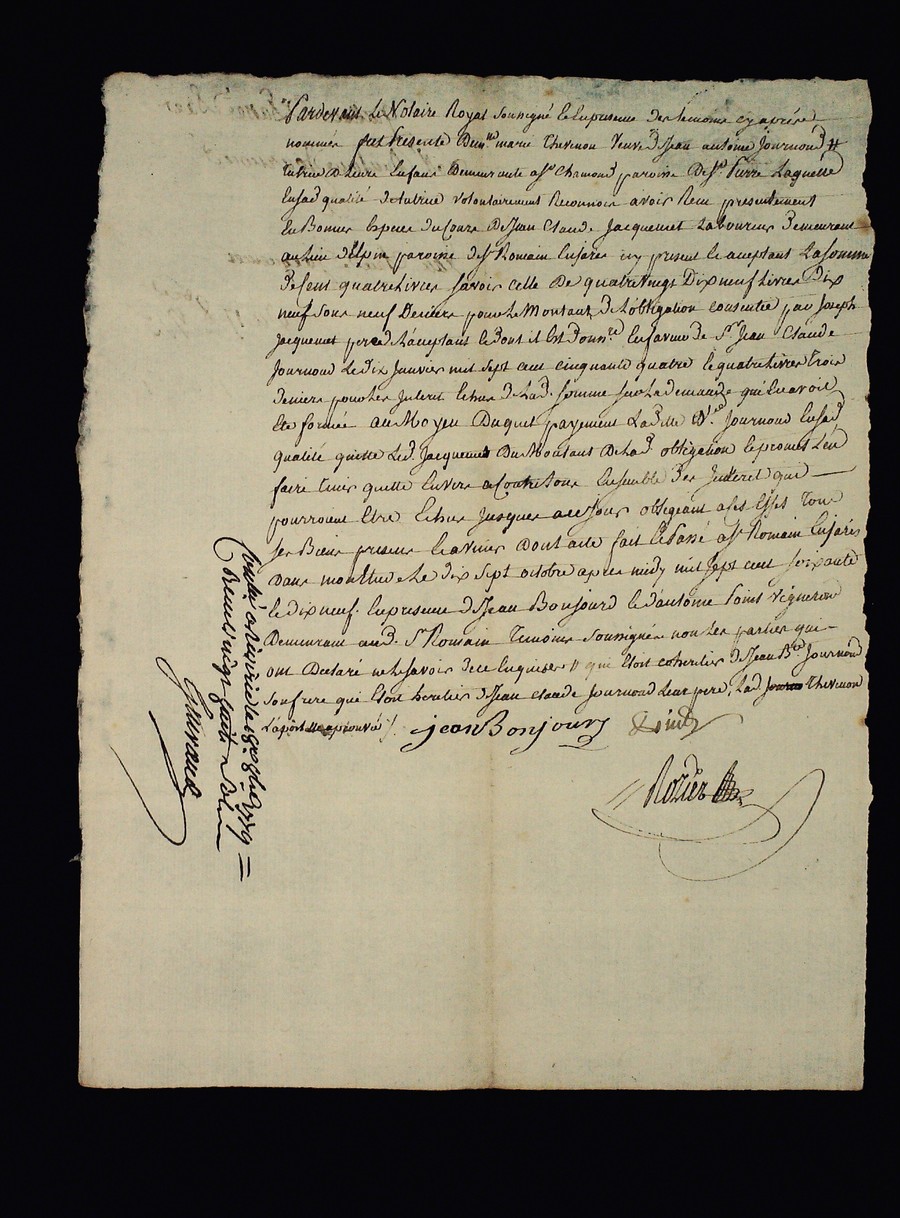 Pardevant Le Notaire Royal Soussigné et en presence des temoins cy aprés
nommés fut Presente Dem.lle marie thevenon veuve de S.r Jean antoine Journoud #
tutrice de leurs Enfans Demeurante a S.t Chamond paroisse de S.t Pierre Laquelle
En sad. qualité de tutrice volontairement Reconnois avoir Reçu presentement
En Bonnes Especes du Cours De Jean Claude Jacquemet Laboureur Demeurant
au Lieu d'Elpin paroisse de S.t Romain En jares icy present et acceptant La somme
De Cent quatre Livres Savoir celle De quatre vingt Dix neuf Livres Dix
neuf Sous neuf Deniers pour Le Montant De L'obligation Consentie par Joseph
Jacquemet pere de L'acceptant et dont il Est Donn.re En faveur de S.r Jean Claude
Journoud Le Dix Janvier mil Sept cent cinquante quatre et quatre Livres trois
deniers pour Les Interet Echus de Lad. Somme sur La demande qui En avoit
Eté formée au Moyen Duquel payement Ladite D.lle Journoud En sad.
qualité quitte Led. Jacquemet Du Montant De Lad. obligation et promet L'en
faire tenir quitte Envers et Contre tous Ensemble Des Interet qui
pourroient Etre Echus Jusques a ce Jour obligeant a ces Effes tous
ses Biens presens et avenir Dont acte fait et Passé a S.t Romain En jarés
Dans mon Etude Le Dix Sept octobre apres midy mil Sept cent soixante
et dix neuf. En presence de Jean Bonjourd et d'antoine Point Vigneron
Demeurant aud. S.t Romain temoins Soussignés non Les parties qui
ont Declaré ne Le Savoir de ce Enquises # qui Etoit coheritier de Jean B.te Journoud
Son frere qui Etoit heritier de Jean Claude Journoud Leur pere, Lad. Thevenon
L'apostille approuvée /. jean Bonjourd Point
Rozier
Contrôlé a
Reçu vingt huit sols
Guiraud